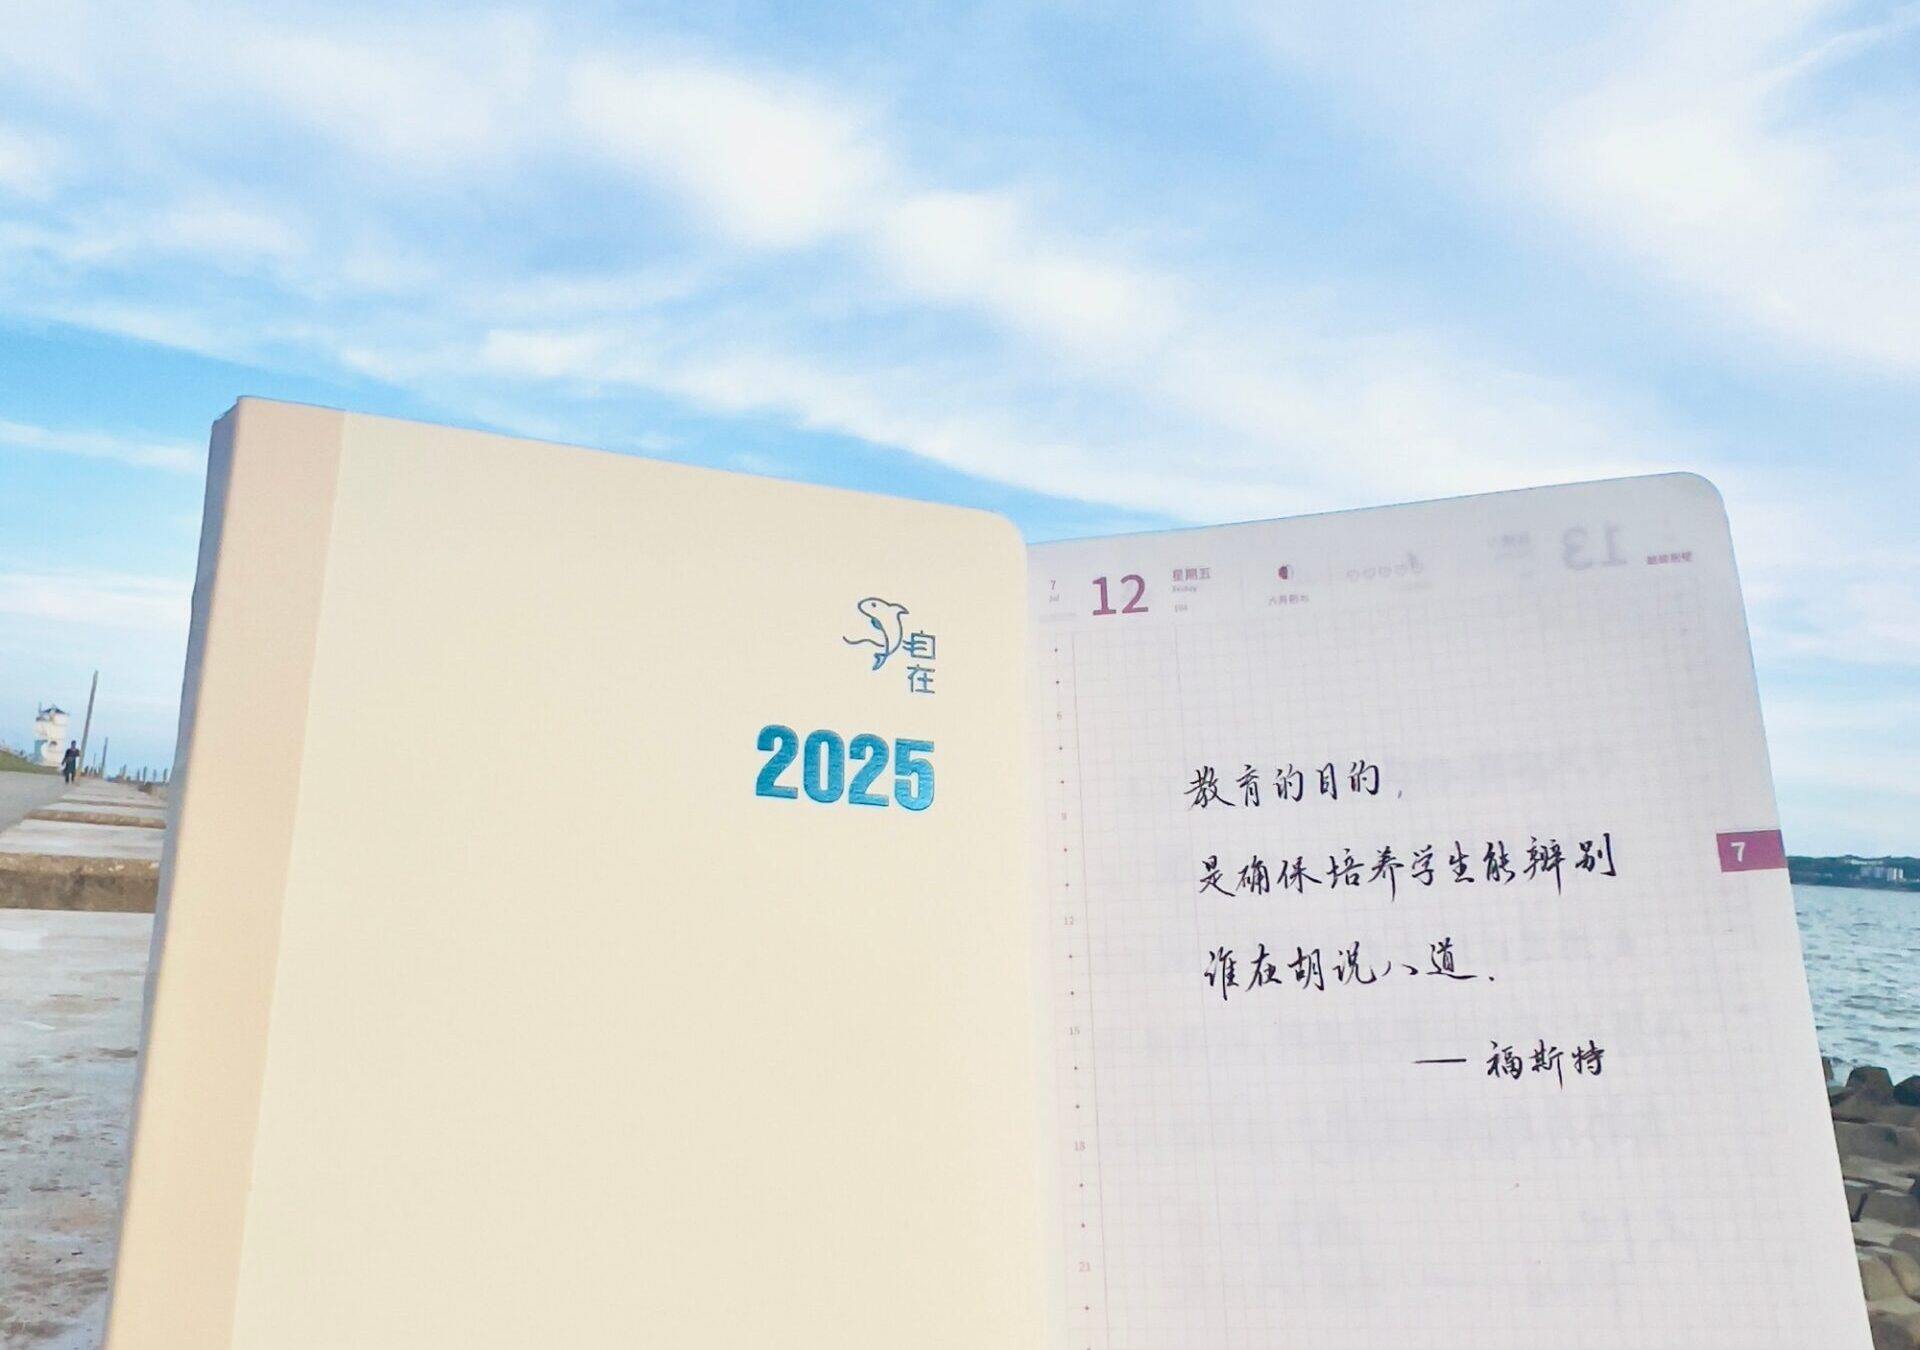 自在
2025
7
Jul
12
星期五
Friday
教育的目的，
是确保培养学生能辨别
谁在胡说八道.
— 福斯特
7
6
9
12
15
18
21
13